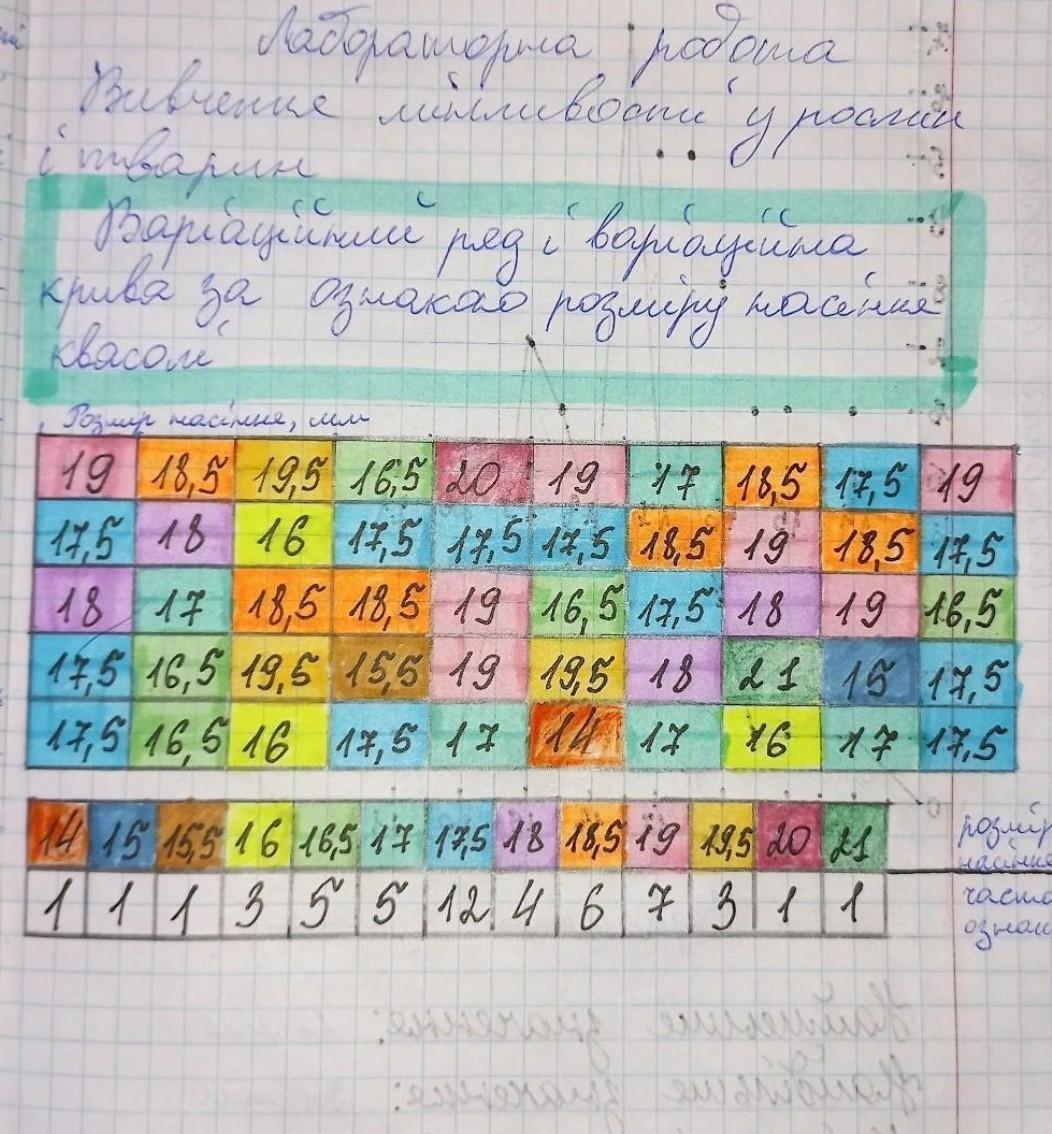 Лабораторна робота
Вивчення мінливості у рослин
і тварин
Варіаційний ряд і варіаційна
крива за ознакою розміру насіння
квасолі
Розмір насіння, мм
19 18,5 19,5 16,5 20 19 17 18,5 17,5 19
17,5 18 16 17,5 17,5 17,5 18,5 19 18,5 17,5
18 17 18,5 18,5 19 16,5 17,5 18 19 16,5
17,5 16,5 19,5 15,5 19 19,5 18 21 15 17,5
17,5 16,5 16 17,5 17 14 17 16 17 17,5
14 15 15,5 16 16,5 17 17,5 18 18,5 19 19,5 20 21 розмір
насіння
1 1 1 3 5 5 12 4 6 7 3 1 1 часто
ознак
Найменше значення:
Найбільше значення: